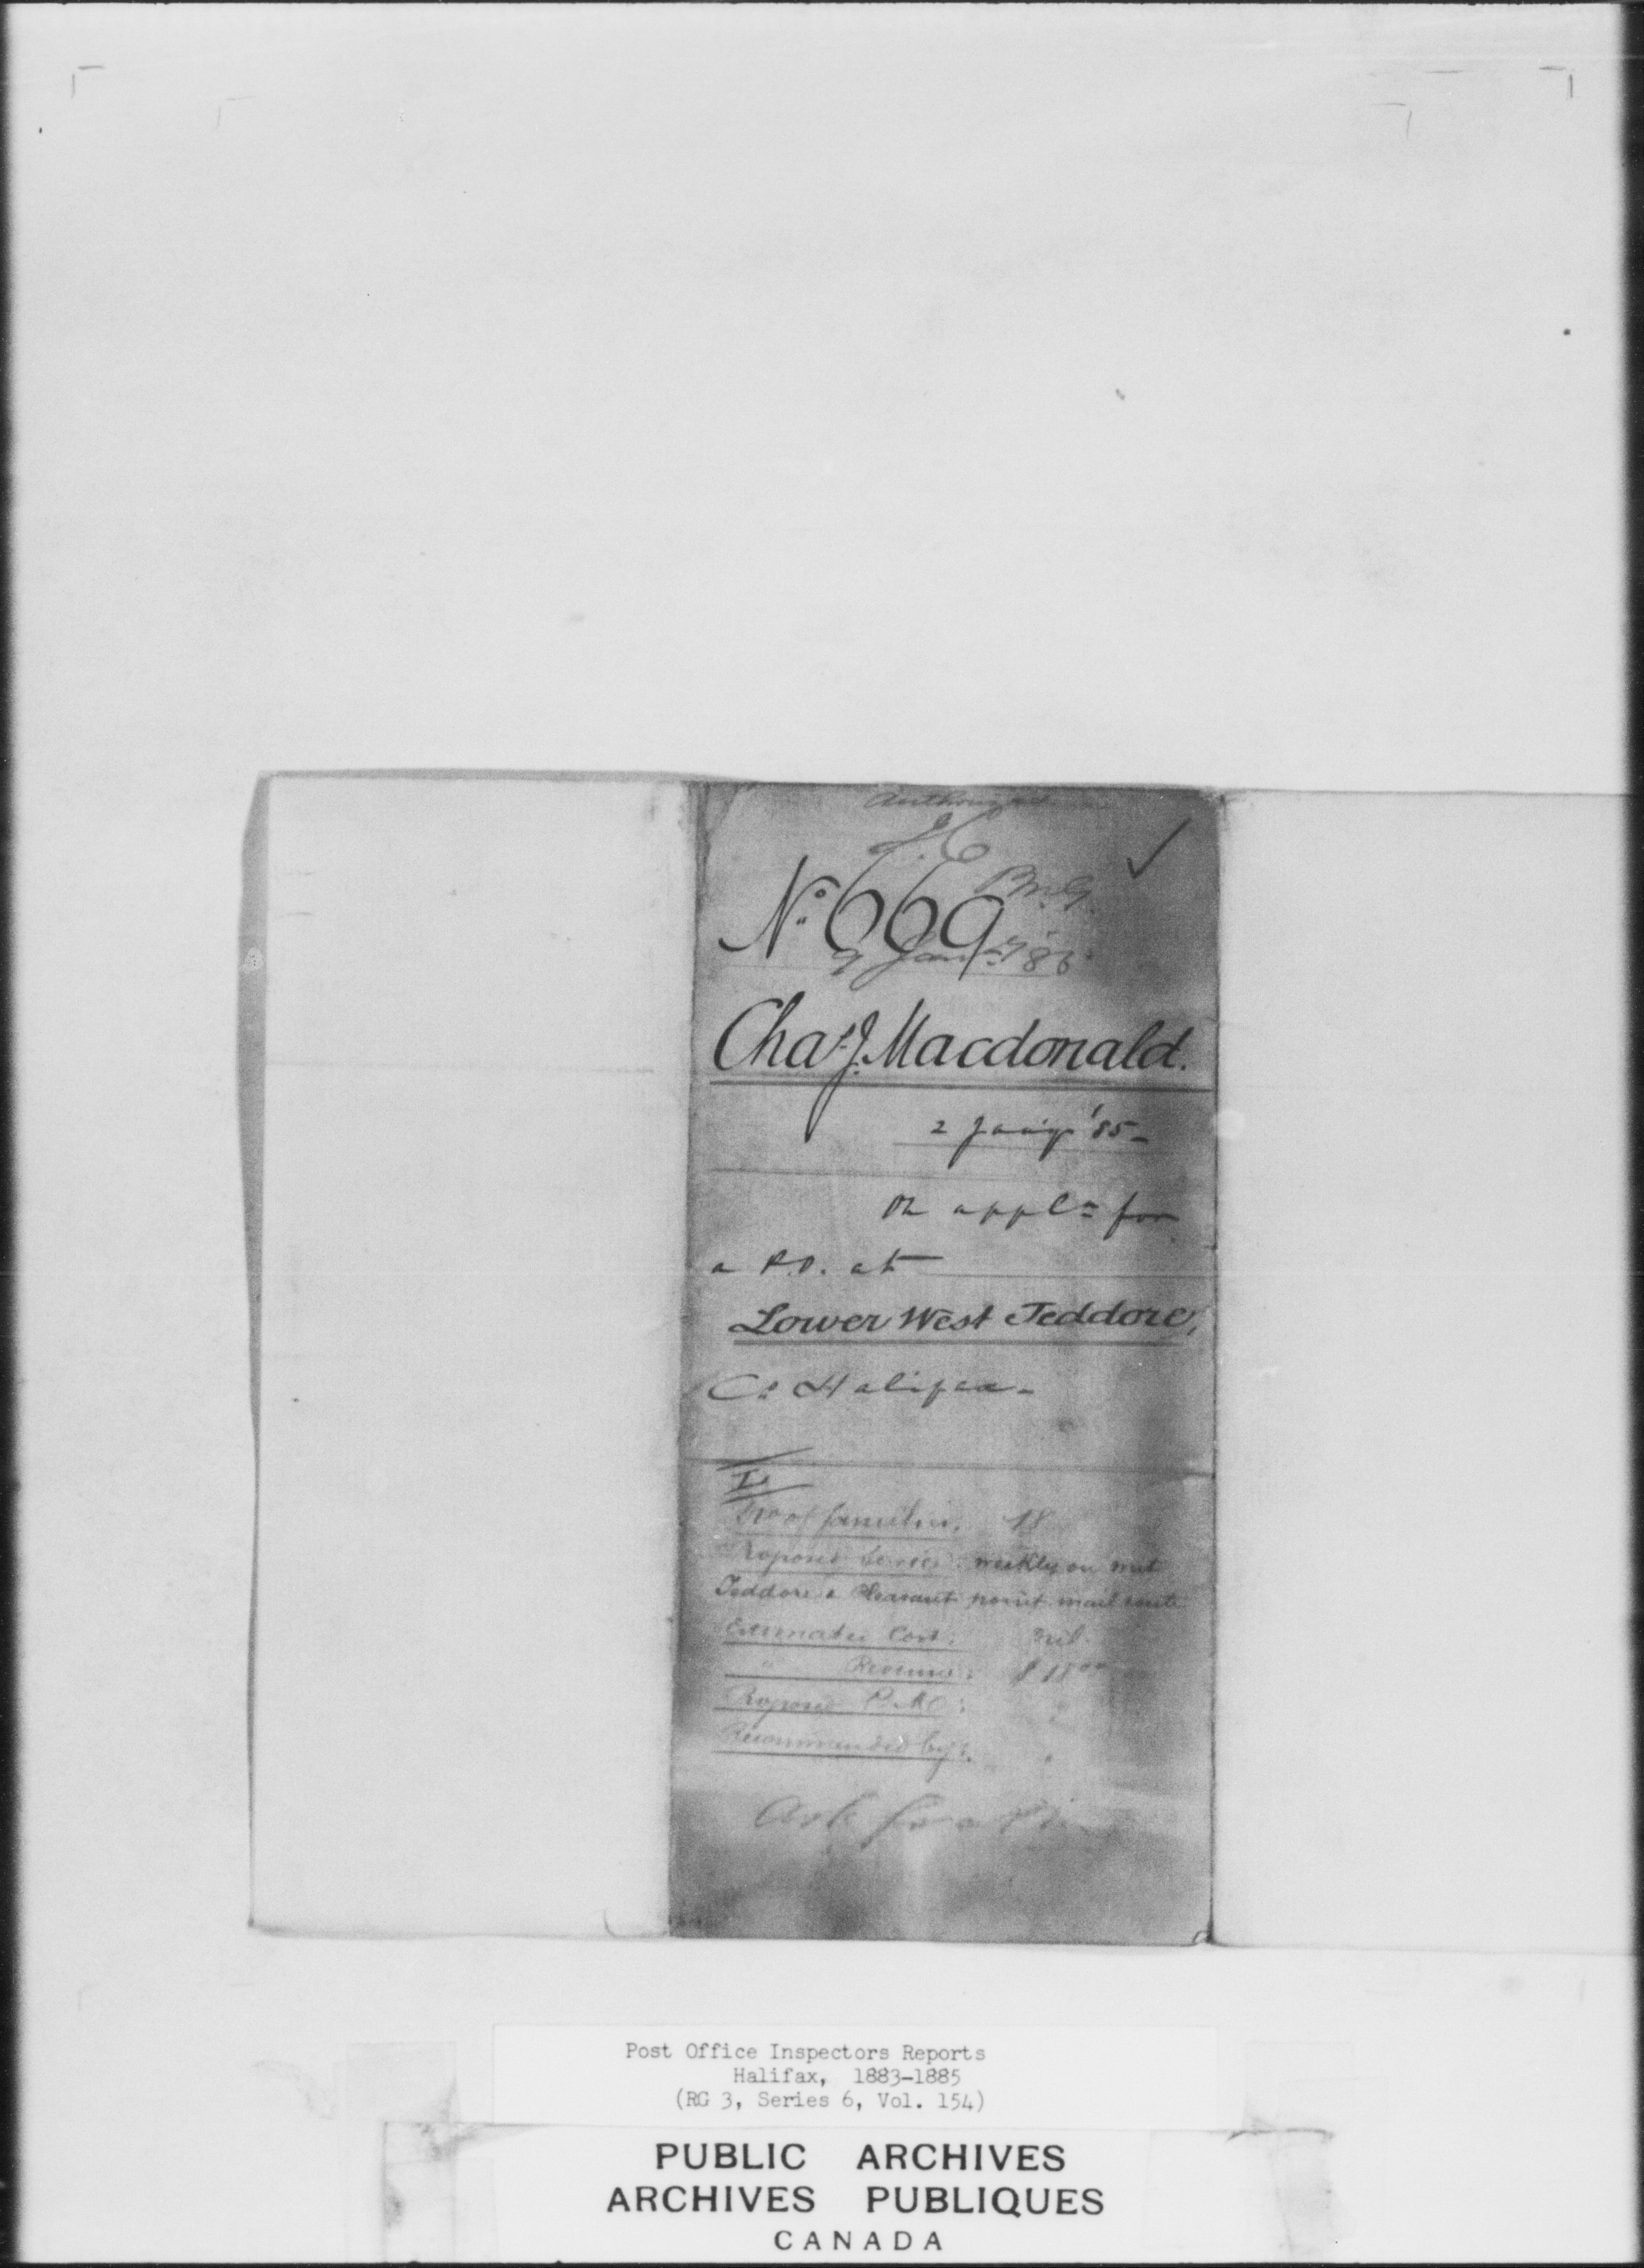 Authorized
J. C
P.M.G.
No. 669
9 Jany '85
Chas. J. Macdonald.
2 Jany '85 -
On appln for
a P.O. at
Lower West Jeddore,
Co Halifax -
No of families, 18
Proposed Service: weekly on West
Jeddore & Pleasant point mail route
Estimated Cost: nil.
" Revenue: $ 18 00
Proposed P.M.:
Recommended by:
Ask for
Post Office Inspectors Reports
Halifax, 1883-1885
(RG 3, Series 6, Vol. 154)
PUBLIC ARCHIVES
ARCHIVES PUBLIQUES
CANADA